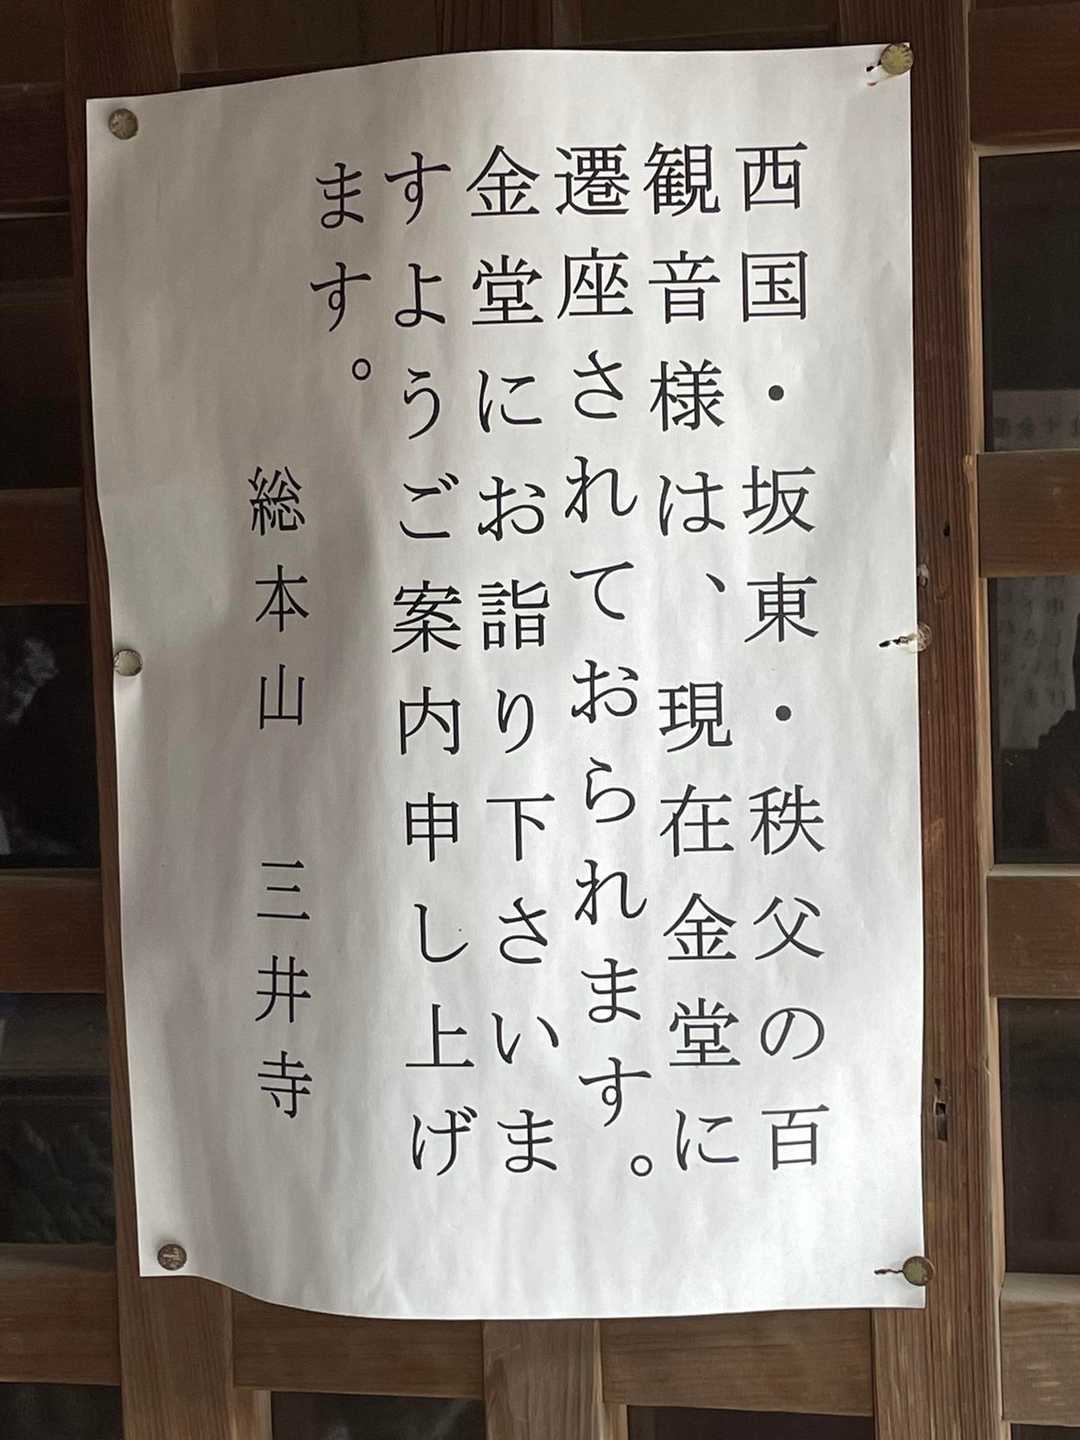 西国・坂東・秩父の百
観音様は、現在金堂に
遷座されておられます。
金堂にお詣り下さいま
すようご案内申し上げ
ます。
総本山　三井寺